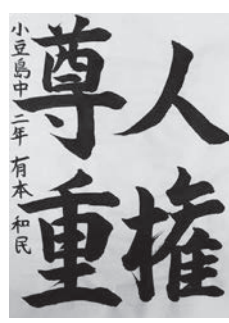 人権
尊重
小豆島中 二年 有本 和民